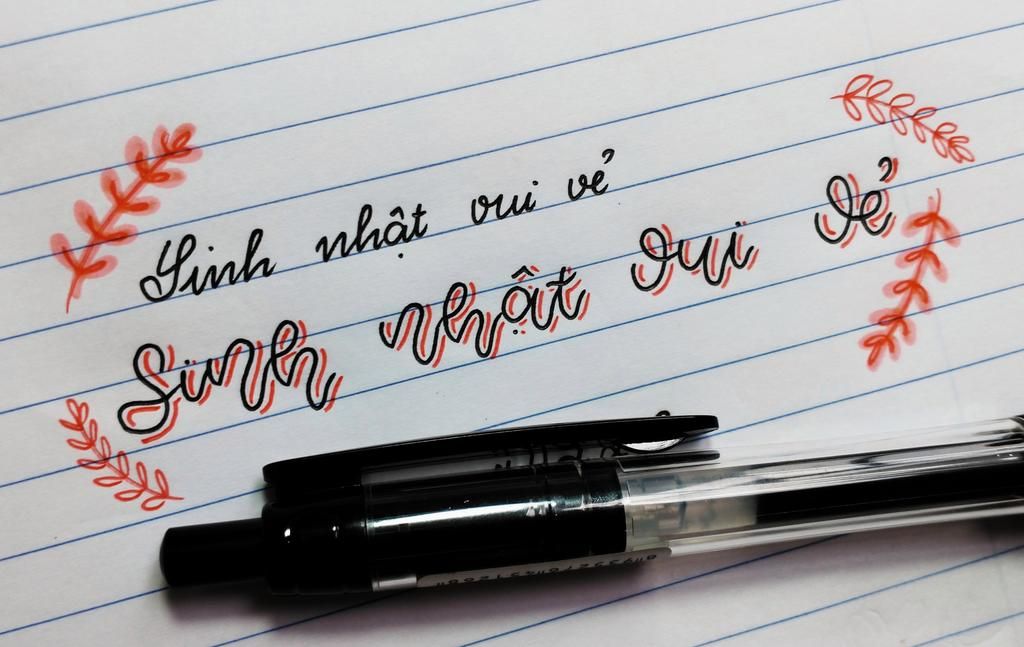 Sinh nhật vui vẻ
Sinh nhật vui vẻ